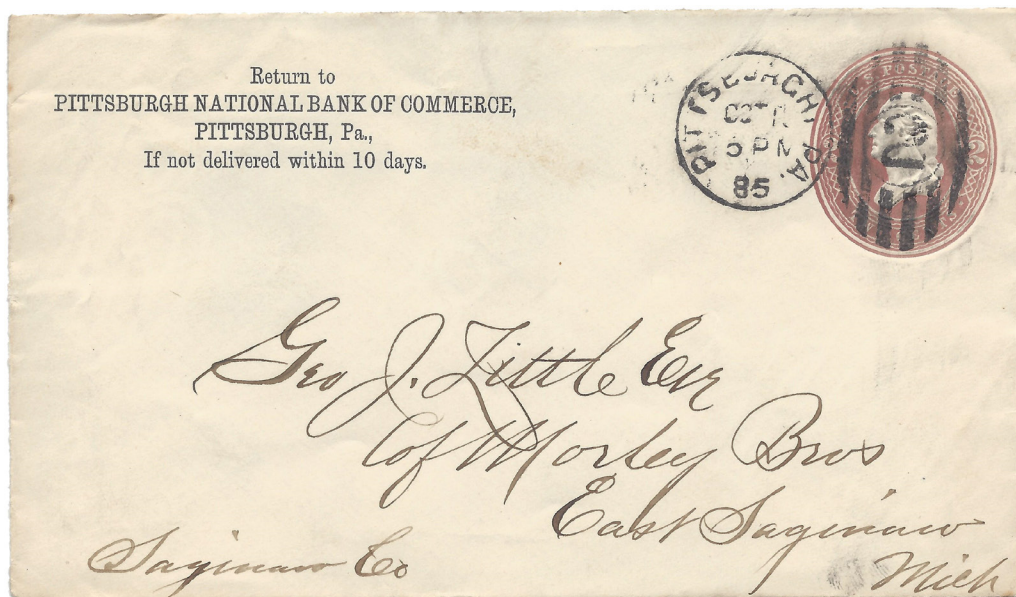 Return to
PITTSBURGH NATIONAL BANK OF COMMERCE,
PITTSBURGH, Pa.,
If not delivered within 10 days.
PITTSBURGH PA.
OCT
5 PM
85
2
Geo J. Little Esq
C of Morley Bros
East Saginaw
Saginaw Co
Mich